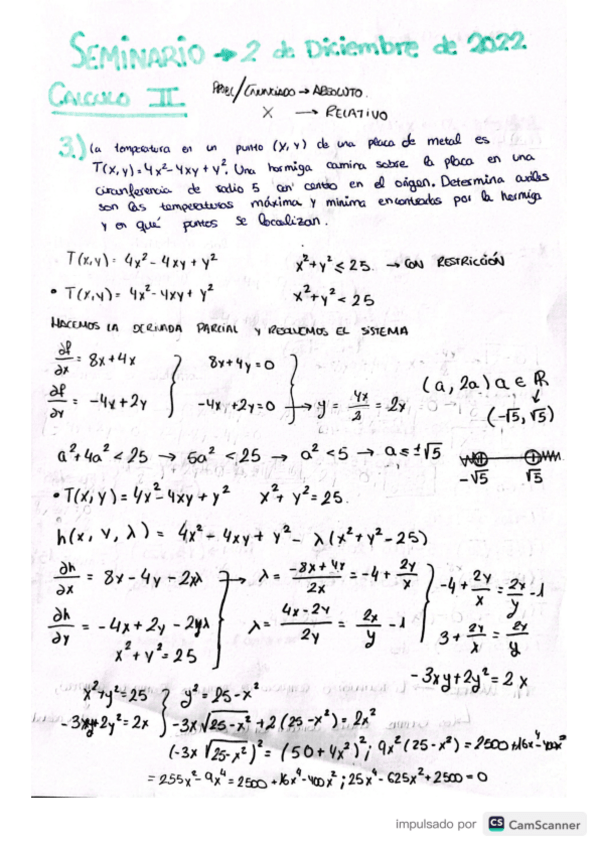 SEMINARIO → 2 de Diciembre de 2022
CALCULO II
→ ABSOLUTO.
X → RELATIVO
3.) La temperatura en un punto (X, Y) de una placa de metal es
T(X, Y) = 4x² - 4xy + y². Una hormiga camina sobre la placa en una
circunferencia de radio 5 con centro en el origen. Determina cuáles
son las temperaturas máxima y mínima encontradas por la hormiga
y en qué puntos se localizan.
T(X,Y) = 4x² - 4xy + y² x² + y² ≤ 25. → CON RESTRICCIÓN
• T(X,Y) = 4x² - 4xy + y² x² + y² < 25
HACEMOS LA DERIVADA PARCIAL Y RESOLVEMOS EL SISTEMA
∂f/∂x = 8x + 4x 8x + 4y = 0
∂f/∂y = -4x + 2y -4x + 2y = 0 → y = 4x/2 = 2x (a, 2a) a ∈ ℝ
(-√5, √5)
a² + 4a² < 25 → 5a² < 25 → a² < 5 → a ≤ ±√5 -√5 √5
• T(X,Y) = 4x² - 4xy + y² x² + y² = 25.
h(x, y, λ) = 4x² - 4xy + y² - λ(x² + y² - 25)
∂h/∂x = 8x - 4y - 2xλ → λ = (-8x + 4y)/2x = -4 + 2y/x -4 + 2y/x = 2x/y - 1
∂h/∂y = -4x + 2y - 2yλ λ = (4x - 2y)/2y = 2x/y - 1 3 + 2y/x = 2x/y
x² + y² = 25
-3xy + 2y² = 2x
x² + y² = 25 y² = 25 - x²
-3xy + 2y² = 2x -3x√(25 - x²) + 2(25 - x²) = 2x²
(-3x √(25 - x²))² = (50 + 4x²)²; 9x²(25 - x²) = 2500 + 16x⁴ - 400x²
= 255x² - 9x⁴ = 2500 + 16x⁴ - 400x²; 25x⁴ - 625x² + 2500 = 0
impulsado por CS CamScanner